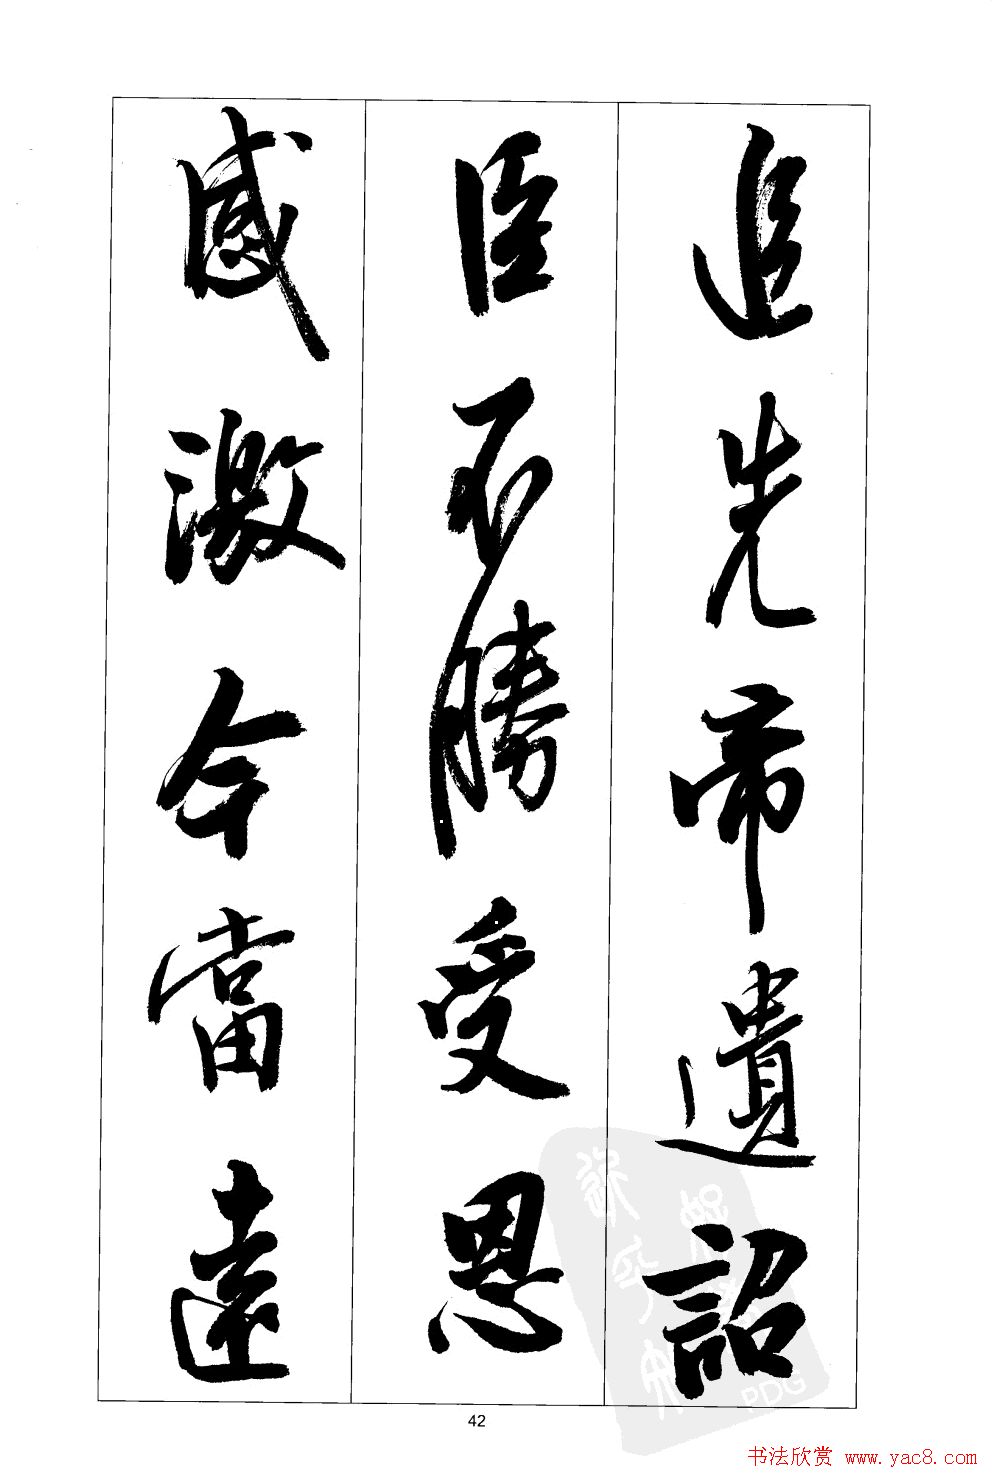 追先帝遺詔
臣不勝受恩
感激今當遠
42
PDG
书法欣赏 www.yac8.com